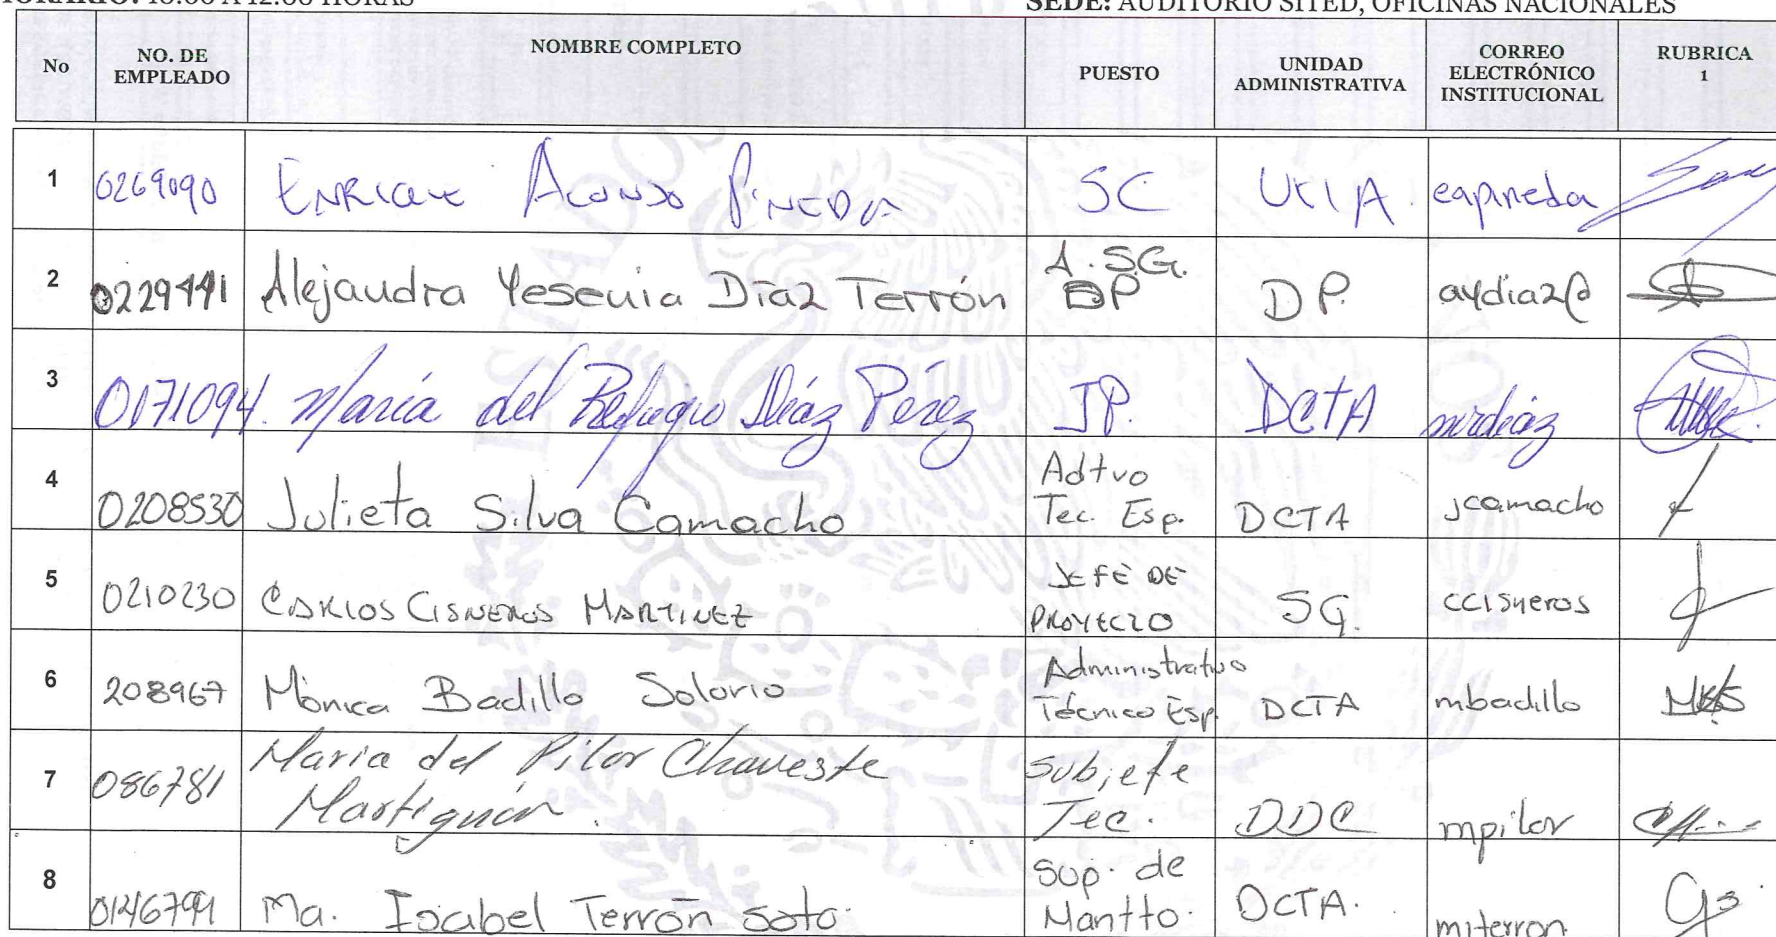 HORARIO: 10:00 A 12:00 HORAS SEDE: AUDITORIO SITED, OFICINAS NACIONALES
No NO. DE EMPLEADO NOMBRE COMPLETO PUESTO UNIDAD ADMINISTRATIVA CORREO ELECTRÓNICO INSTITUCIONAL RUBRICA 1
1 0269090 ENRIQUE ALONSO PINEDA SC UCIA eapineda
2 0229441 Alejandra Yesenia Díaz Terrón A. S.G. DP DP. aydiaz@
3 0171094. María del Refugio Díaz Pérez JP. DCTA mrdiaz
4 0208530 Julieta Silva Camacho Adtvo Tec. Esp. DCTA jcamacho
5 0210230 CARLOS CISNEROS MARTINEZ JEFE DE PROYECTO SG. ccisneros
6 208967 Mónica Badillo Solorio Administrativo Técnico Esp. DCTA mbadillo
7 086781 Maria del Pilar Chaveste Martiguón. Subjefe Tec. DDC mpilar
8 Ma. Isabel Terrón Soto. Sup. de Mantto. DCTA. miterron